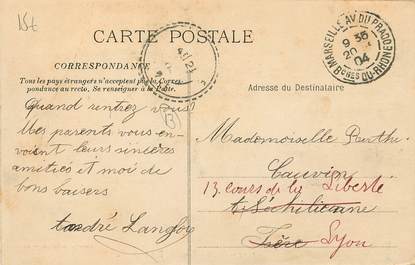 15t
CARTE POSTALE
CORRESPONDANCE
Tous les pays étrangers n'acceptent pas la Corres-
pondance au recto. Se renseigner à la Poste.
Quand rentrez vous?
Mes parents vous en-
voient leurs sincères
amitiés et moi de
bons baisers
André Langlois
13
MARSEILLE AV. DU PRADO
9 35
20
04
BCHES DU-RHONE
Adresse du Destinataire
Mademoiselle Berthe
Cauvin
13. cours de la Liberté
Lyon